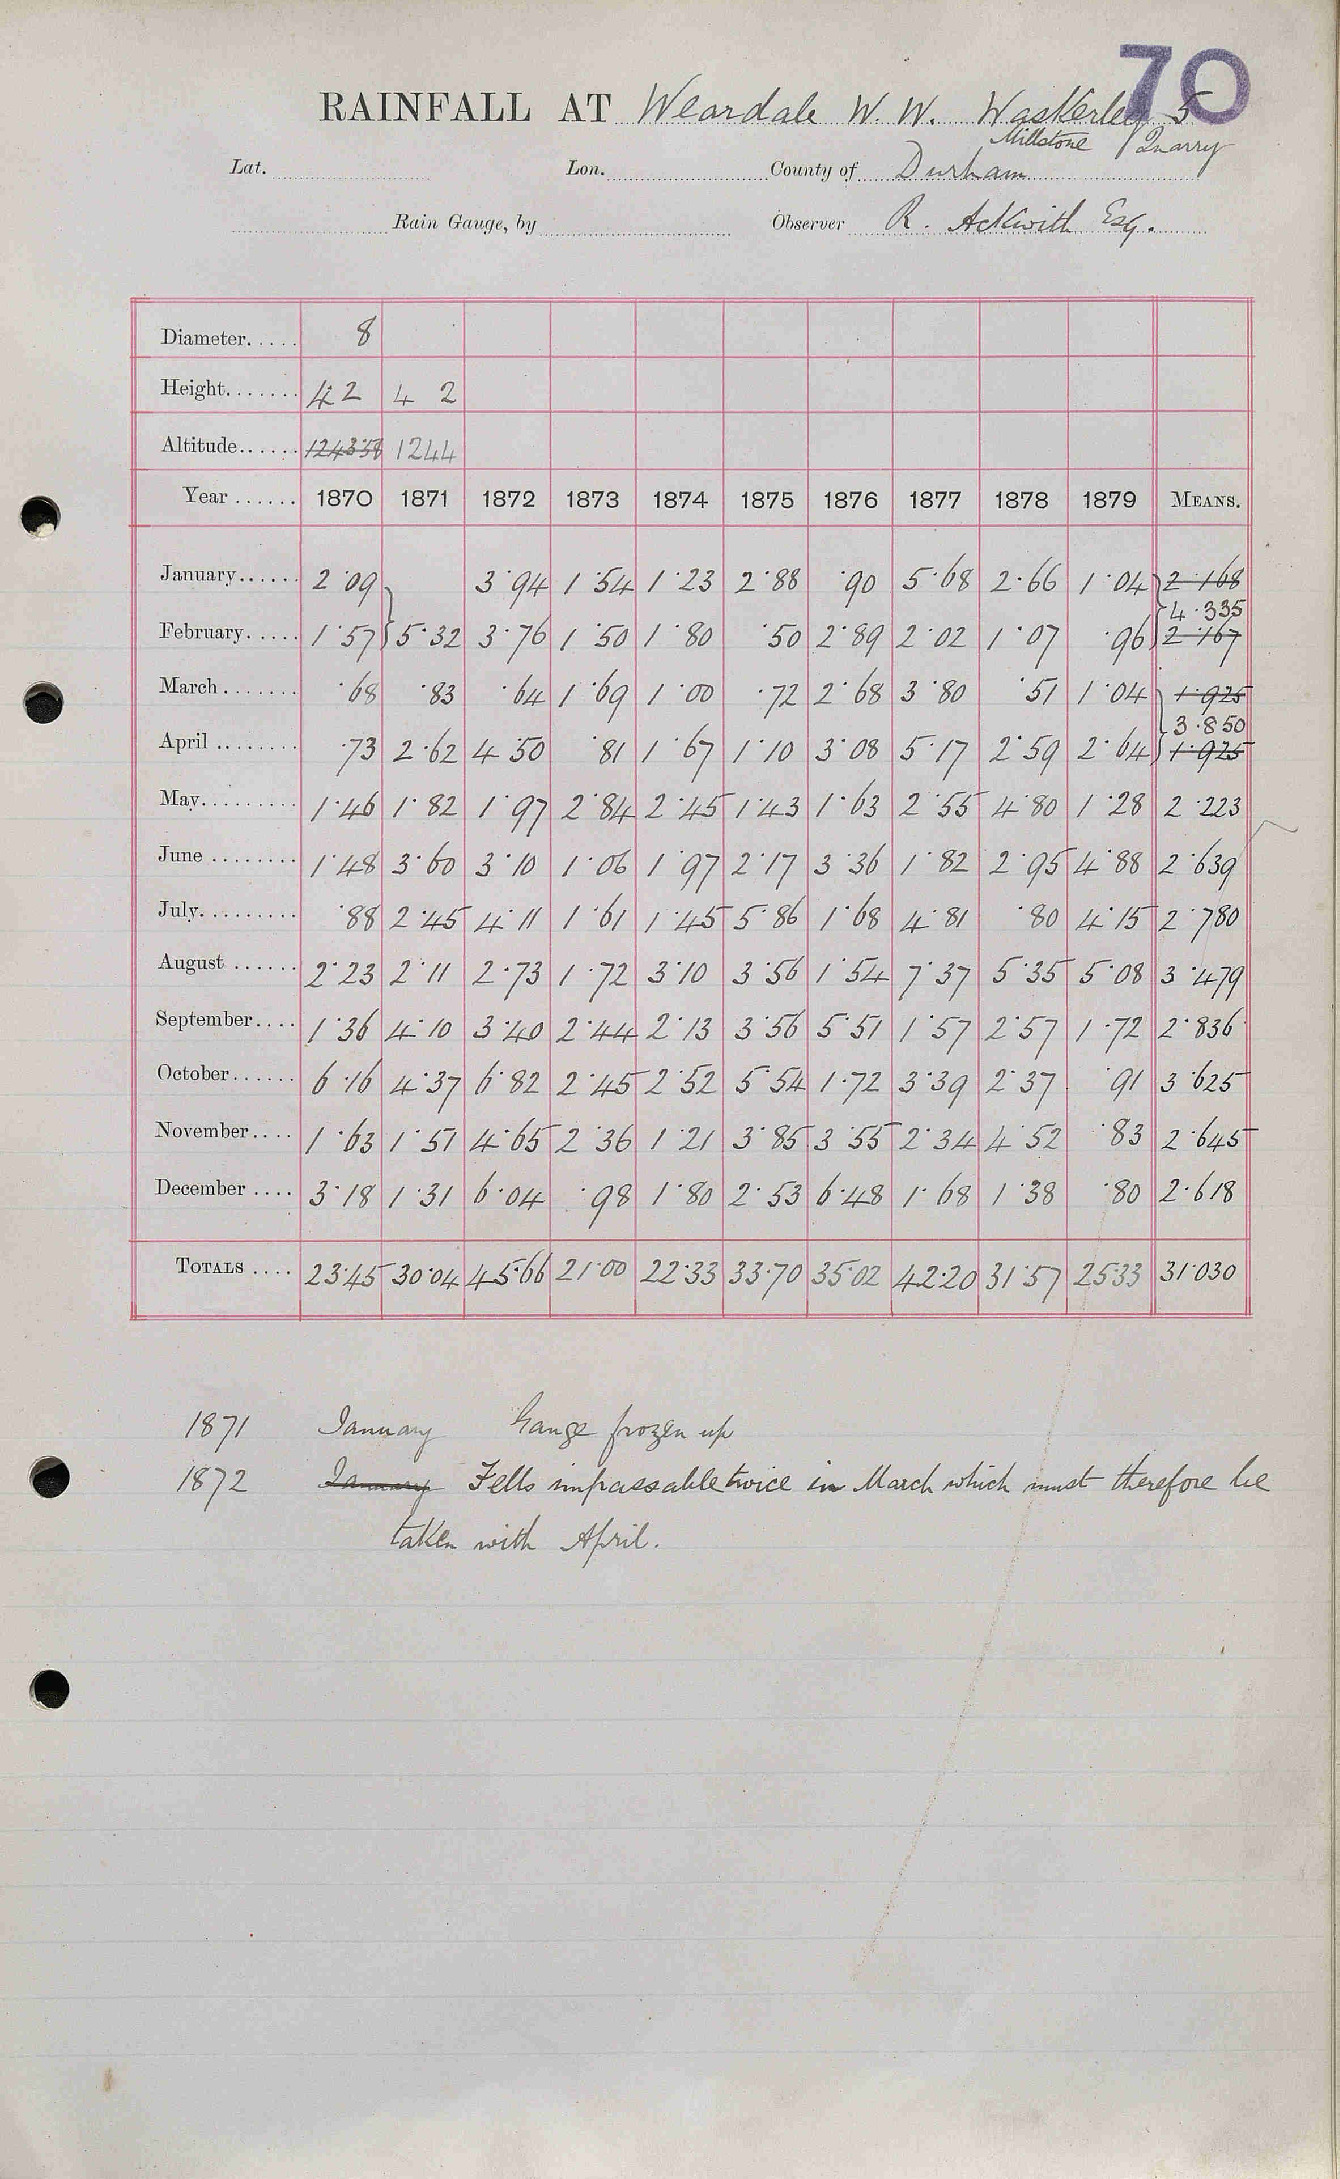 70
RAINFALL AT Weardale W. W. Waskerley 5
Millstone Quarry
Lat. Lon. County of Durham
Rain Gauge, by Observer R. Askwith Esq.
Diameter. 8
Height. 42 42
Altitude. 1243.58 1244
Year 1870 1871 1872 1873 1874 1875 1876 1877 1878 1879 MEANS.
January 2.09 3.94 1.54 1.23 2.88 .90 5.68 2.66 1.04 2.168
4.335
February 1.57 5.32 3.76 1.50 1.80 .50 2.89 2.02 1.07 .96 2.167
March .68 .83 .64 1.69 1.00 .72 2.68 3.80 .51 1.04 1.925
3.850
April .73 2.62 4.50 .81 1.67 1.10 3.08 5.17 2.59 2.64 1.925
May 1.46 1.82 1.97 2.84 2.45 1.43 1.63 2.55 4.80 1.28 2.223
June 1.48 3.60 3.10 1.06 1.97 2.17 3.36 1.82 2.95 4.88 2.639
July .88 2.45 4.11 1.61 1.45 5.86 1.68 4.81 .80 4.15 2.780
August 2.23 2.11 2.73 1.72 3.10 3.56 1.54 7.37 5.35 5.08 3.479
September 1.36 4.10 3.40 2.44 2.13 3.56 5.51 1.57 2.57 1.72 2.836
October 6.16 4.37 6.82 2.45 2.52 5.54 1.72 3.39 2.37 .91 3.625
November 1.63 1.51 4.65 2.36 1.21 3.85 3.55 2.34 4.52 .83 2.645
December 3.18 1.31 6.04 .98 1.80 2.53 6.48 1.68 1.38 .80 2.618
TOTALS 23.45 30.04 45.66 21.00 22.33 33.70 35.02 42.20 31.57 25.33 31.030
1871 January Gauge frozen up
1872 January Fells impassable twice in March which must therefore be
taken with April.